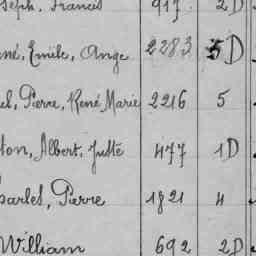 seph, Francis 917 2D
né, Emile, Ange 2283 5D
el, Pierre, René Marie 2216 5
ton, Albert, Juste 477 1D
harles, Pierre 1821 4
William 692 2D